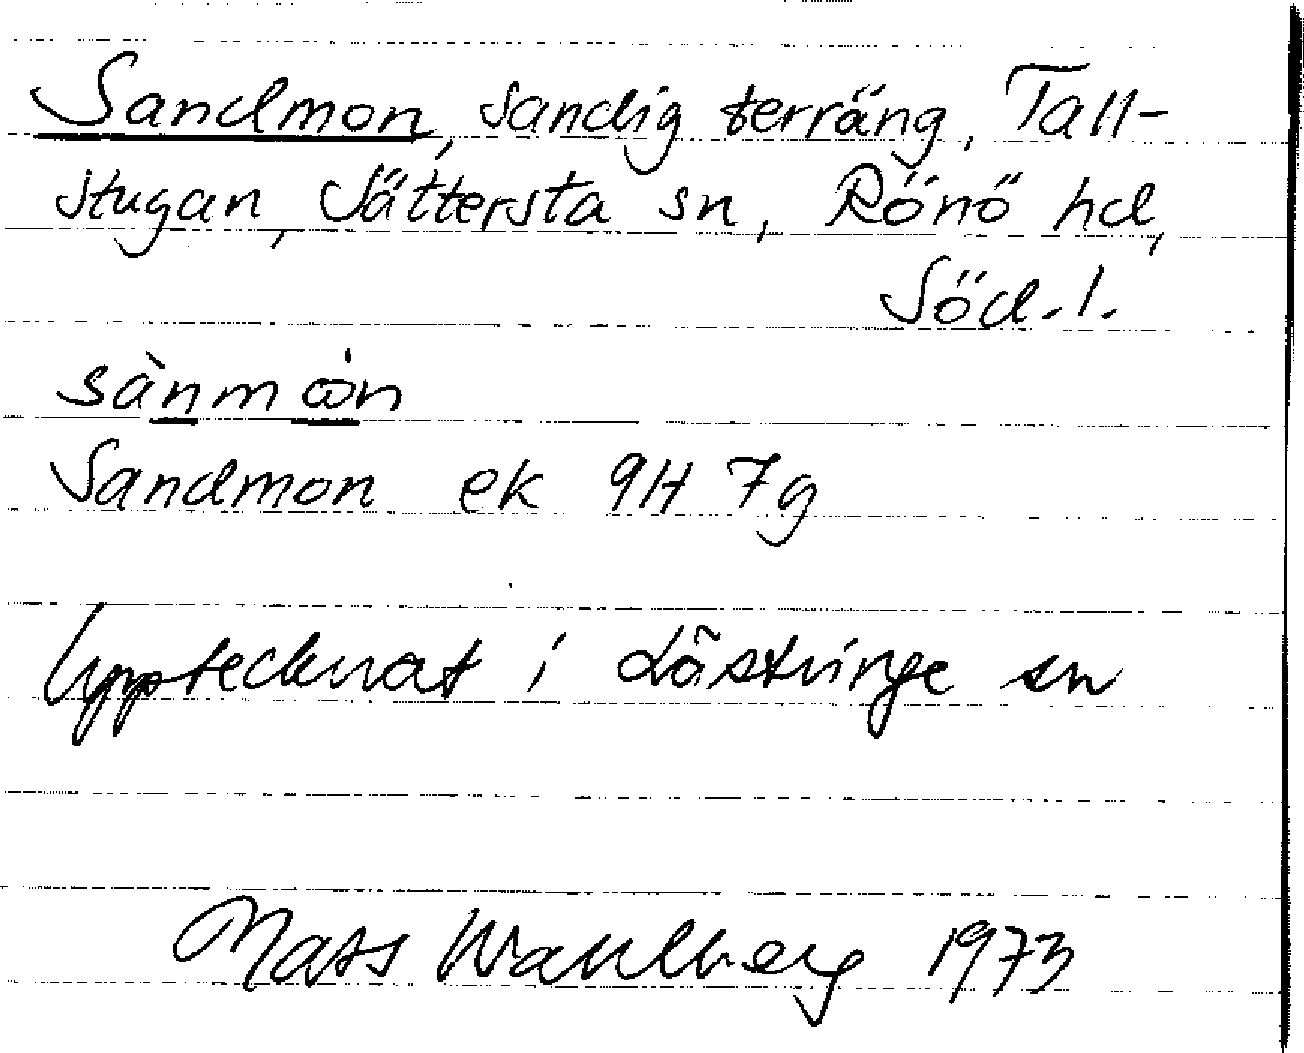 Sandmon, sandig terräng, Tall-
stugan, Sättersta sn, Rönö hd,
Söd.l.
sànmωn
Sandmon ek 9H 7g
Upptecknat i Lästringe sn
Mats Wahlberg 1973